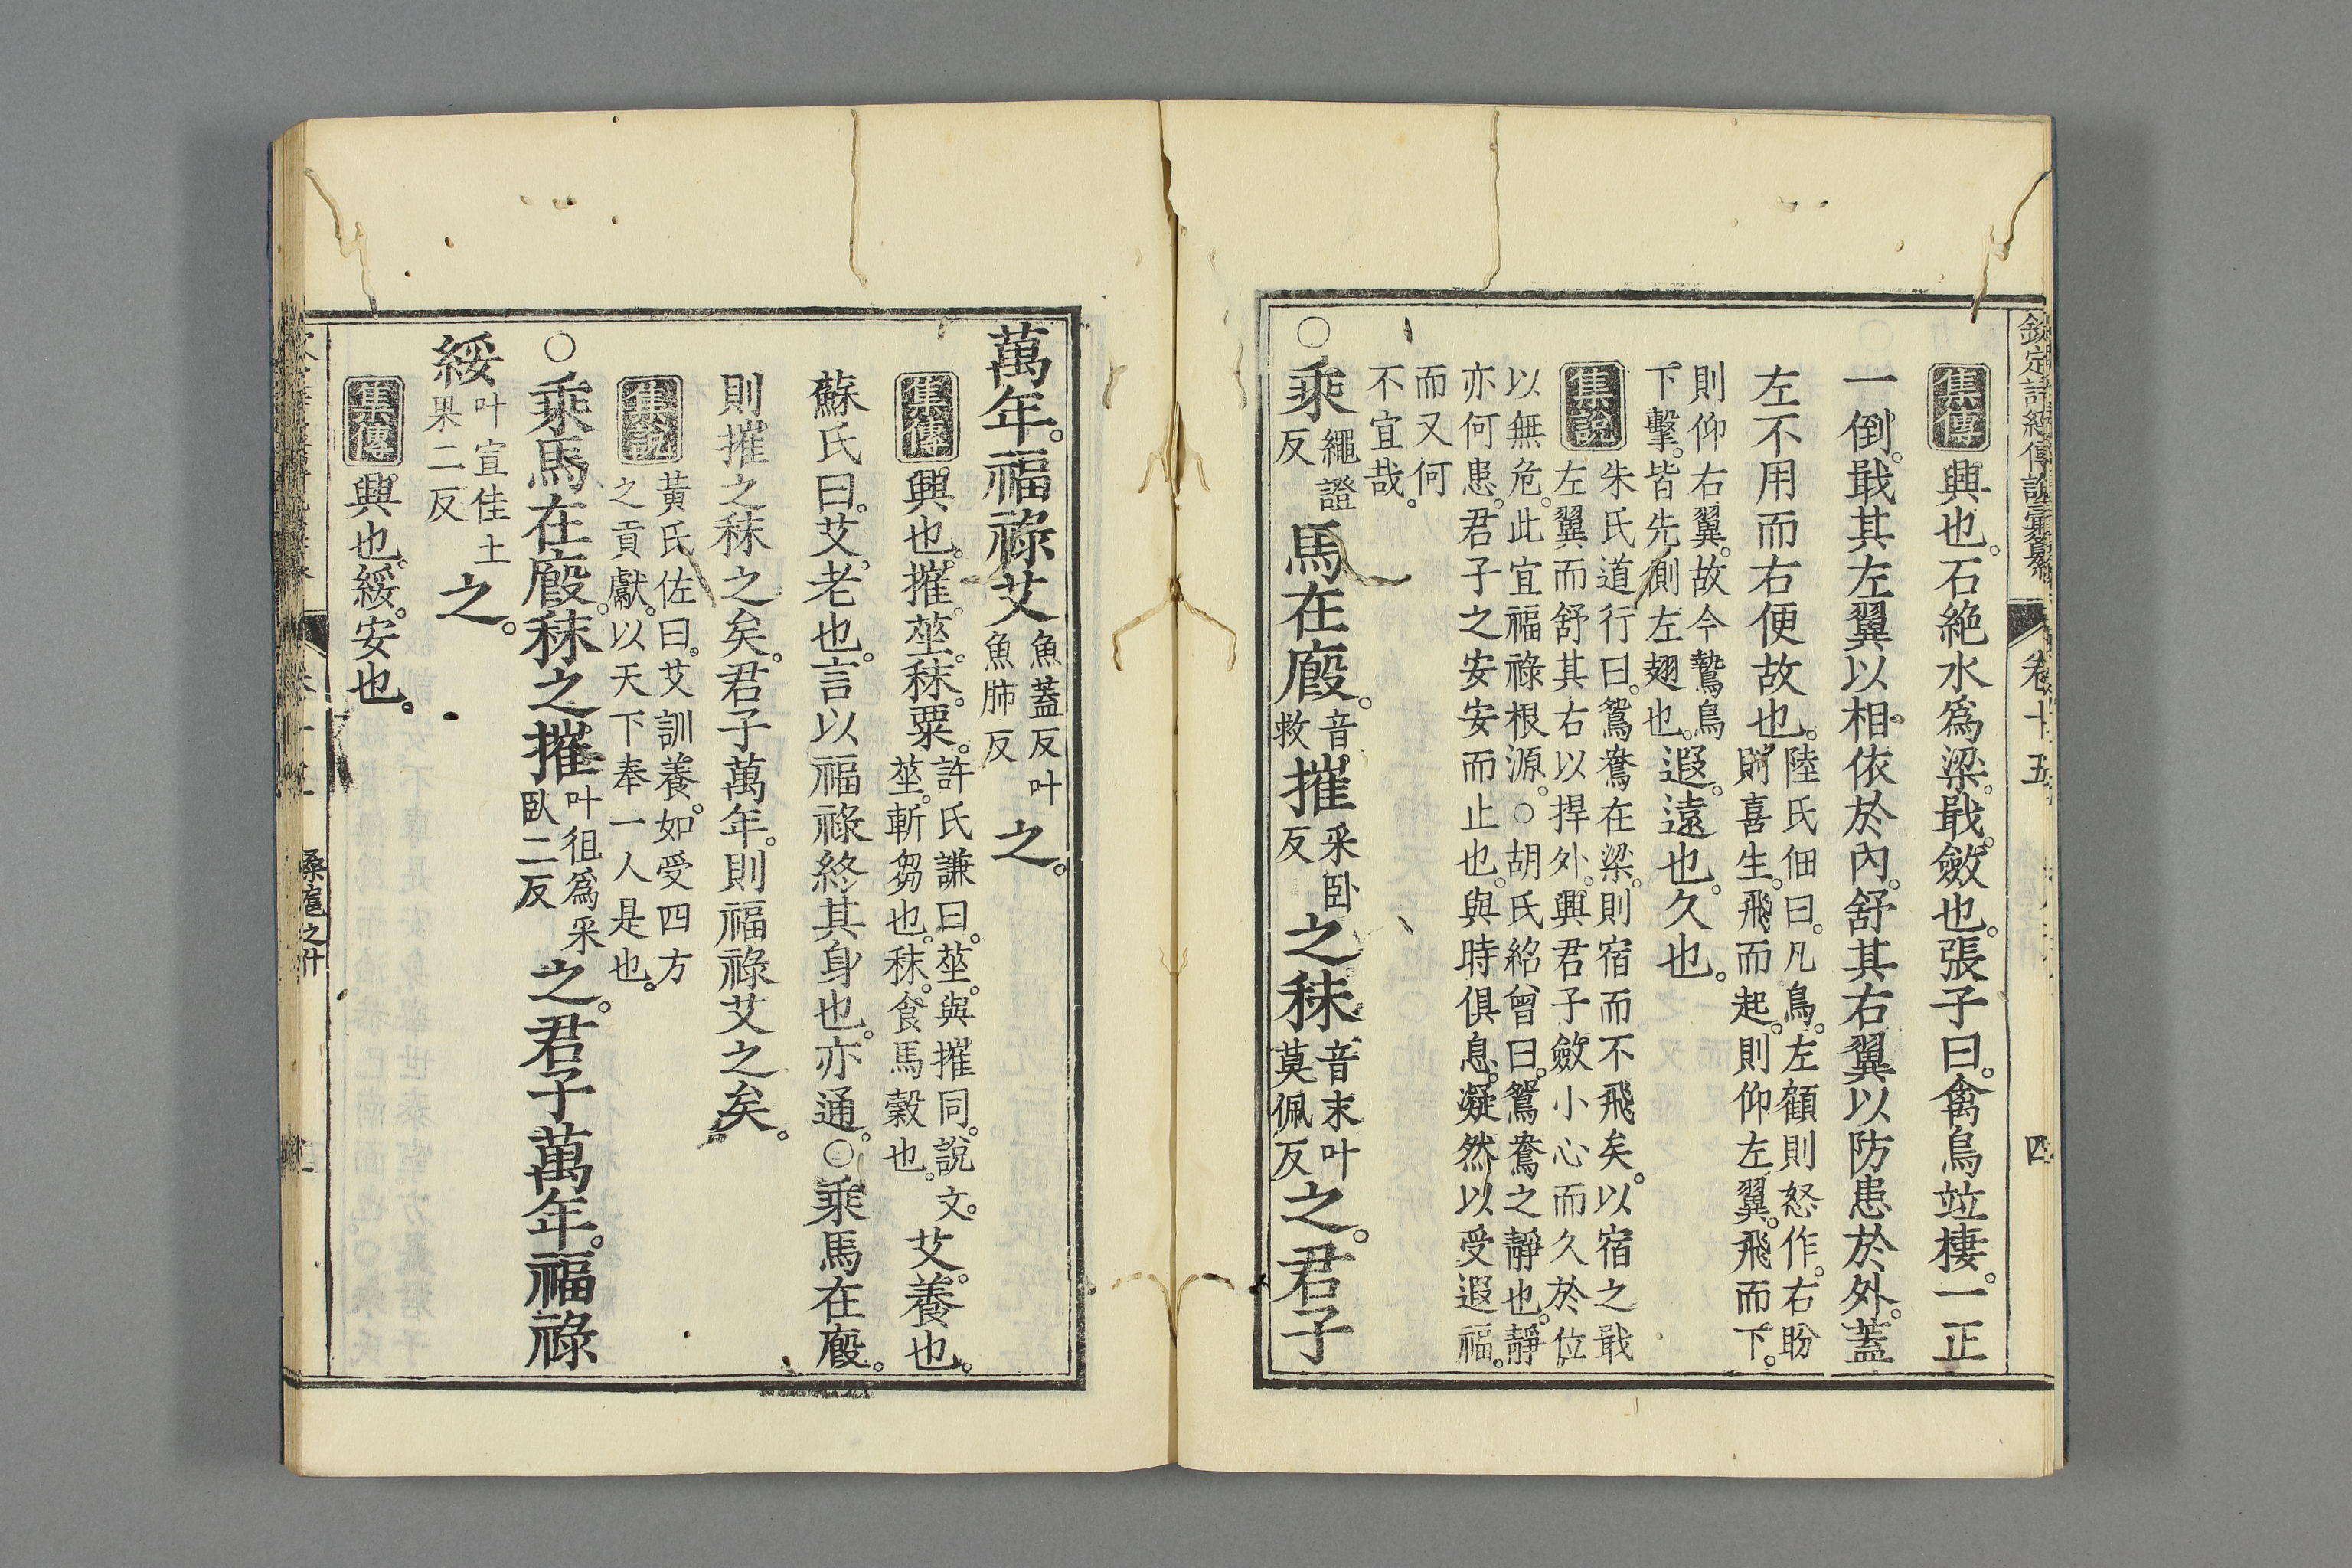 欽定詩經傳說彙纂 卷十五 四
集傳 興也。石絶水爲梁。戢。斂也。張子曰。禽鳥竝棲。一正
一倒。戢其左翼以相依於內。舒其右翼以防患於外。蓋
左不用而右便故也。陸氏佃曰。凡鳥。左顧則怒作。右盼
則喜生。飛而起。則仰左翼。飛而下。
則仰右翼。故今鷙鳥
下擊。皆先側左翅也。遐。遠也。久也。
集說 朱氏道行曰。鴛鴦在梁。則宿而不飛矣。以宿之戢
左翼而舒其右以捍外。興君子斂小心而久於位。
以無危。此宜福祿根源。○胡氏紹曾曰。鴛鴦之靜也。靜
亦何患。君子之安安而止也。與時俱息。凝然以受遐福。
而又何
不宜哉。
○乘繩證反馬在廄。音救摧采卧反之秣音末叶莫佩反之。君子
萬年。福祿艾魚蓋反叶魚肺反之。
集傳 興也。摧。莝。秣。粟。許氏謙曰。莝。與摧同。說文。
莝。斬芻也。秣。食馬穀也。艾。養也。
蘇氏曰。艾。老也。言以福祿終其身也。亦通。○乘馬在廄。
則摧之秣之矣。君子萬年。則福祿艾之矣。
集說 黃氏佐曰。艾訓養。如受四方
之貢獻。以天下奉一人是也。
○乘馬在廄。秣之摧叶徂爲采臥二反之。君子萬年。福祿
綏叶宣佳土果二反之。
集傳 興也。綏。安也。
桑扈之什